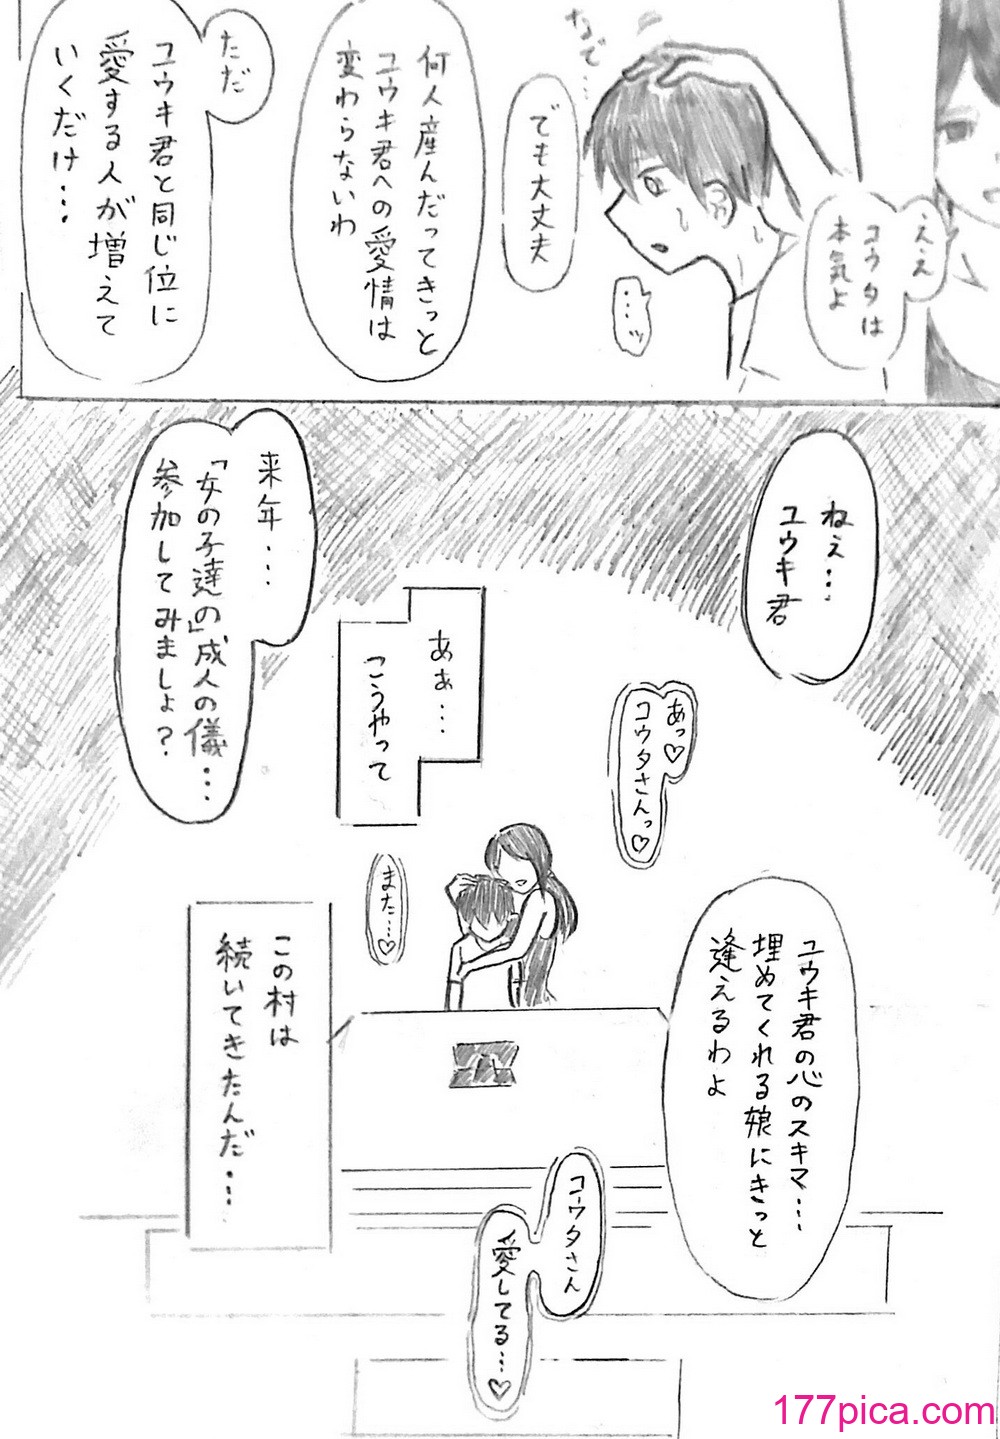 ええ
コウタは
本気よ
なで…
…ッ
でも大丈夫
何人産んだってきっと
ユウキ君への愛情は
変わらないわ
ただ
ユウキ君と同じ位に
愛する人が増えて
いくだけ…
ねぇ…
ユウキ君
来年…
「女の子達の」成人の儀…
参加してみましょ？
あっ♡
コウタさんっ♡
あぁ…
こうやって
ユウキ君の心のスキマ…
埋めてくれる娘にきっと
逢えるわよ
また…♡
この村は
続いてきたんだ…
コウタさん
愛してる…♡
177pica.com